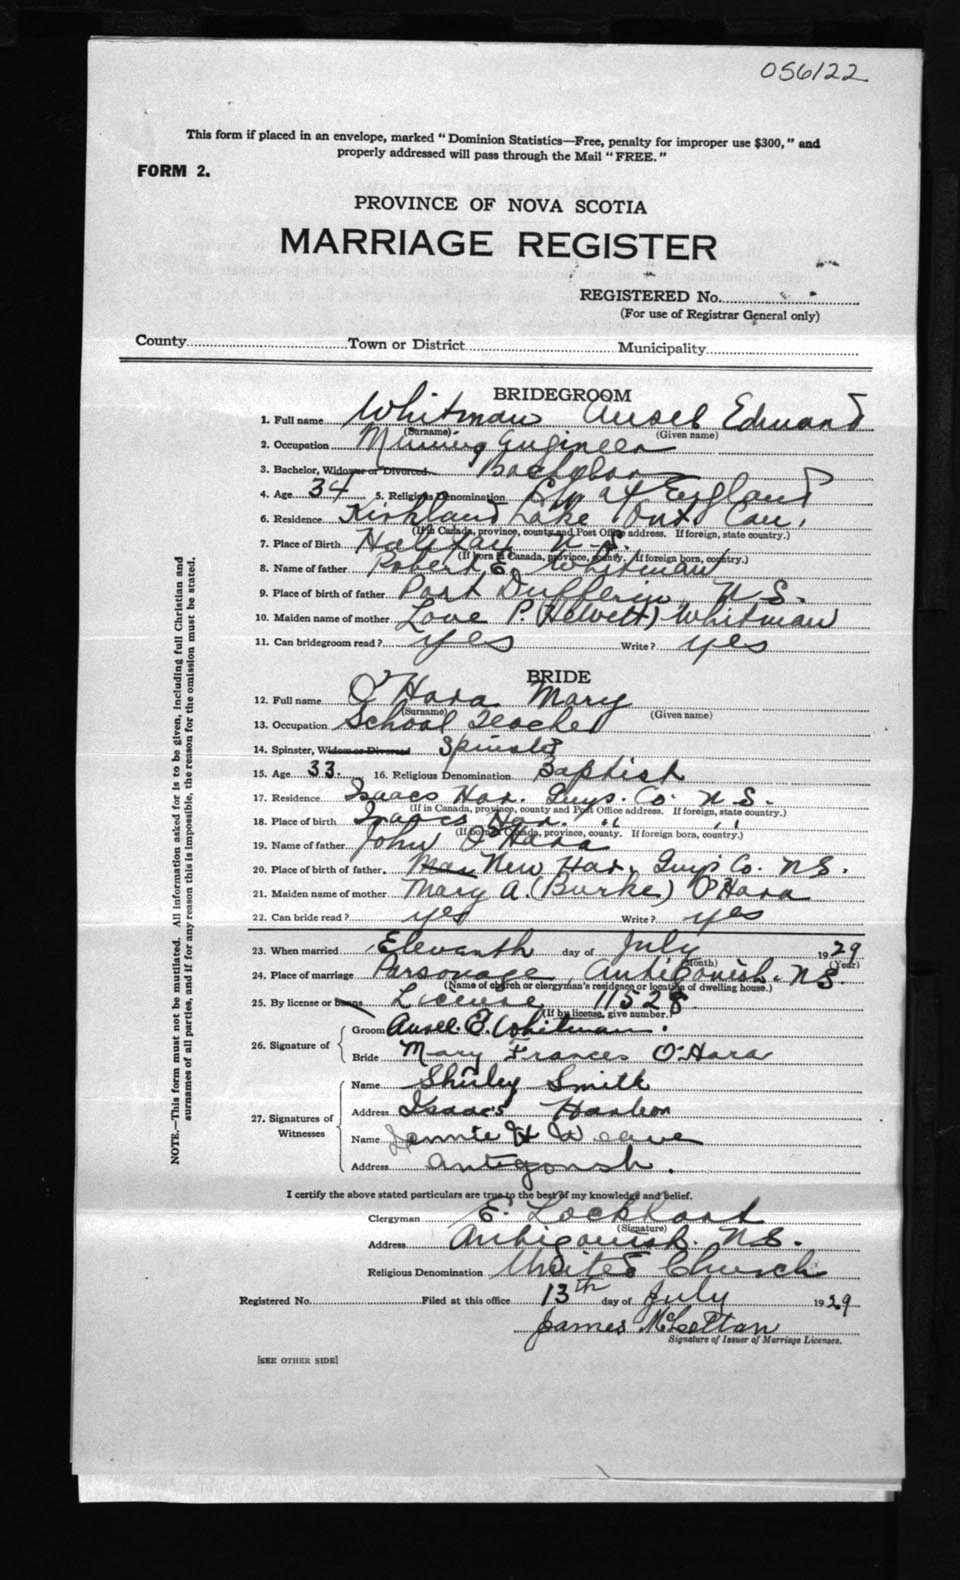 056122
This form if placed in an envelope, marked "Dominion Statistics—Free, penalty for improper use $300," and
properly addressed will pass through the Mail "FREE."
FORM 2.
PROVINCE OF NOVA SCOTIA
MARRIAGE REGISTER
REGISTERED No.
(For use of Registrar General only)
County Town or District Municipality
BRIDEGROOM
1. Full name Whitman Ansel Edward
(Surname) (Given name)
2. Occupation Mining Engineer
3. Bachelor, Widower or Divorced Bachelor
4. Age 34 5. Religious Denomination Ch of England
6. Residence Kirkland Lake Ont. Can.
(If in Canada, province, county and Post Office address. If foreign, state country.)
7. Place of Birth Halifax N.S.
(If born in Canada, province, county. If foreign born, country.)
8. Name of father Robert E. Whitman
9. Place of birth of father Port Dufferin, N.S.
10. Maiden name of mother Love P. (Hewett) Whitman
11. Can bridegroom read? yes Write? yes
BRIDE
12. Full name O'Hara Mary
(Surname) (Given name)
13. Occupation School Teacher
14. Spinster, Widow or Divorced Spinster
15. Age 33. 16. Religious Denomination Baptist
17. Residence Isaacs Har. Guys. Co. N.S.
(If in Canada, province, county and Post Office address. If foreign, state country.)
18. Place of birth Isaacs Har. " "
(If born in Canada, province, county. If foreign born, country.)
19. Name of father John O'Hara
20. Place of birth of father. New Har. Guys Co. N.S.
21. Maiden name of mother Mary A. (Burke) O'Hara
22. Can bride read? yes Write? yes
23. When married Elevanth day of July 1929
(Month) (Year)
24. Place of marriage Parsonage, Antigonish. N.S.
(Name of church or clergyman's residence or location of dwelling house.)
25. By license or banns License 11528
(If by license, give number.)
26. Signature of Groom Ansel. E. Whitman.
Bride Mary Frances O'Hara
27. Signatures of Witnesses
Name Shirley Smith
Address Isaac's Harbor
Name Jennie H Weaver
Address Antigonish.
I certify the above stated particulars are true to the best of my knowledge and belief.
Clergyman E. Lockhart
(Signature)
Address Antigonish. N.S.
Religious Denomination United Church
Registered No. Filed at this office 13th day of July 1929
James
Signature of Issuer of Marriage Licenses.
[SEE OTHER SIDE]
NOTE.—This form must not be mutilated. All information asked for is to be given, including full Christian and
surnames of all parties, and if for any reason this is impossible, the reason for the omission must be stated.